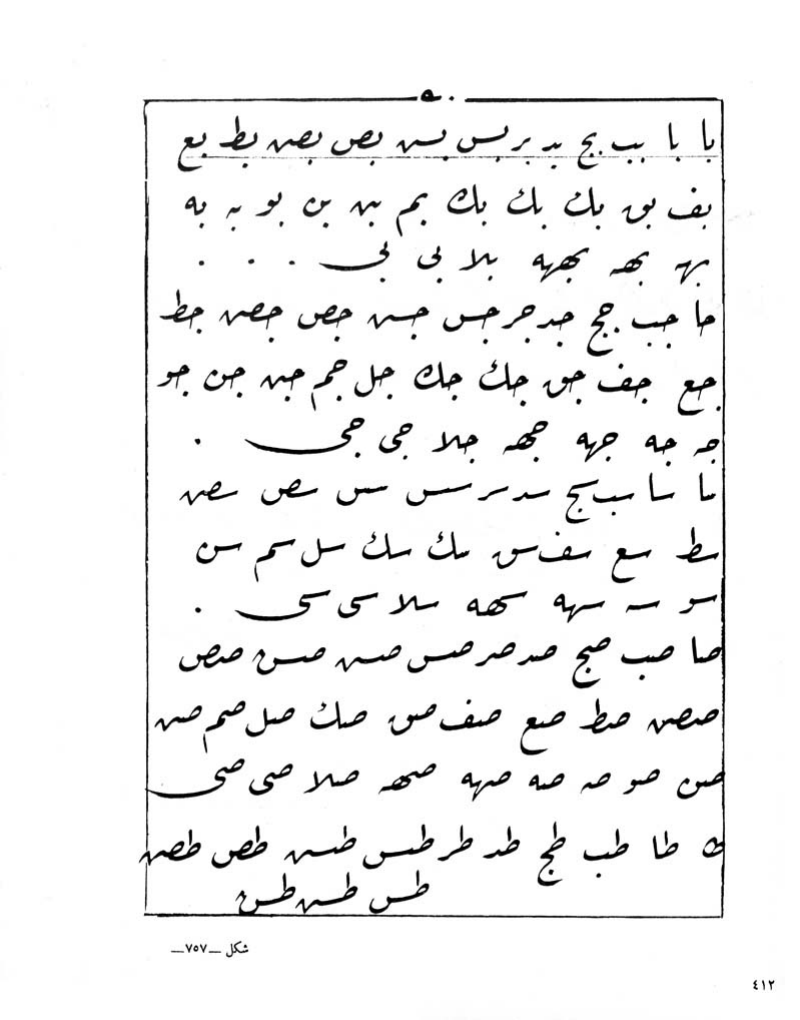 ٥٠
با با بب بج بد بر بس بس بص بص بط بع
بف بق بك بك بك بم بن بن بو به به
بهه بهه بهه بلا بى بى
حا جب جج جد جر جس جس جص جص جط
جع جف جق جك جك جل جم جن جن جو
جه جه جهه جهه جلا جى جى
سا سا سب سج سد سر سس سس سص سص
سط سع سف سق سك سك سل سم سن
سو سه سهه سهه سلا سى سى
صا صب صج صد صر صس صس صس صص
صص صط صع صف صق صك صل صم صن
صن صو صه صه صهه صهه صلا صى صى
ط طا طب طج طد طر طس طس طص طص
طس طس طس
شكل ــ٧٥٧ــ
٤١٢